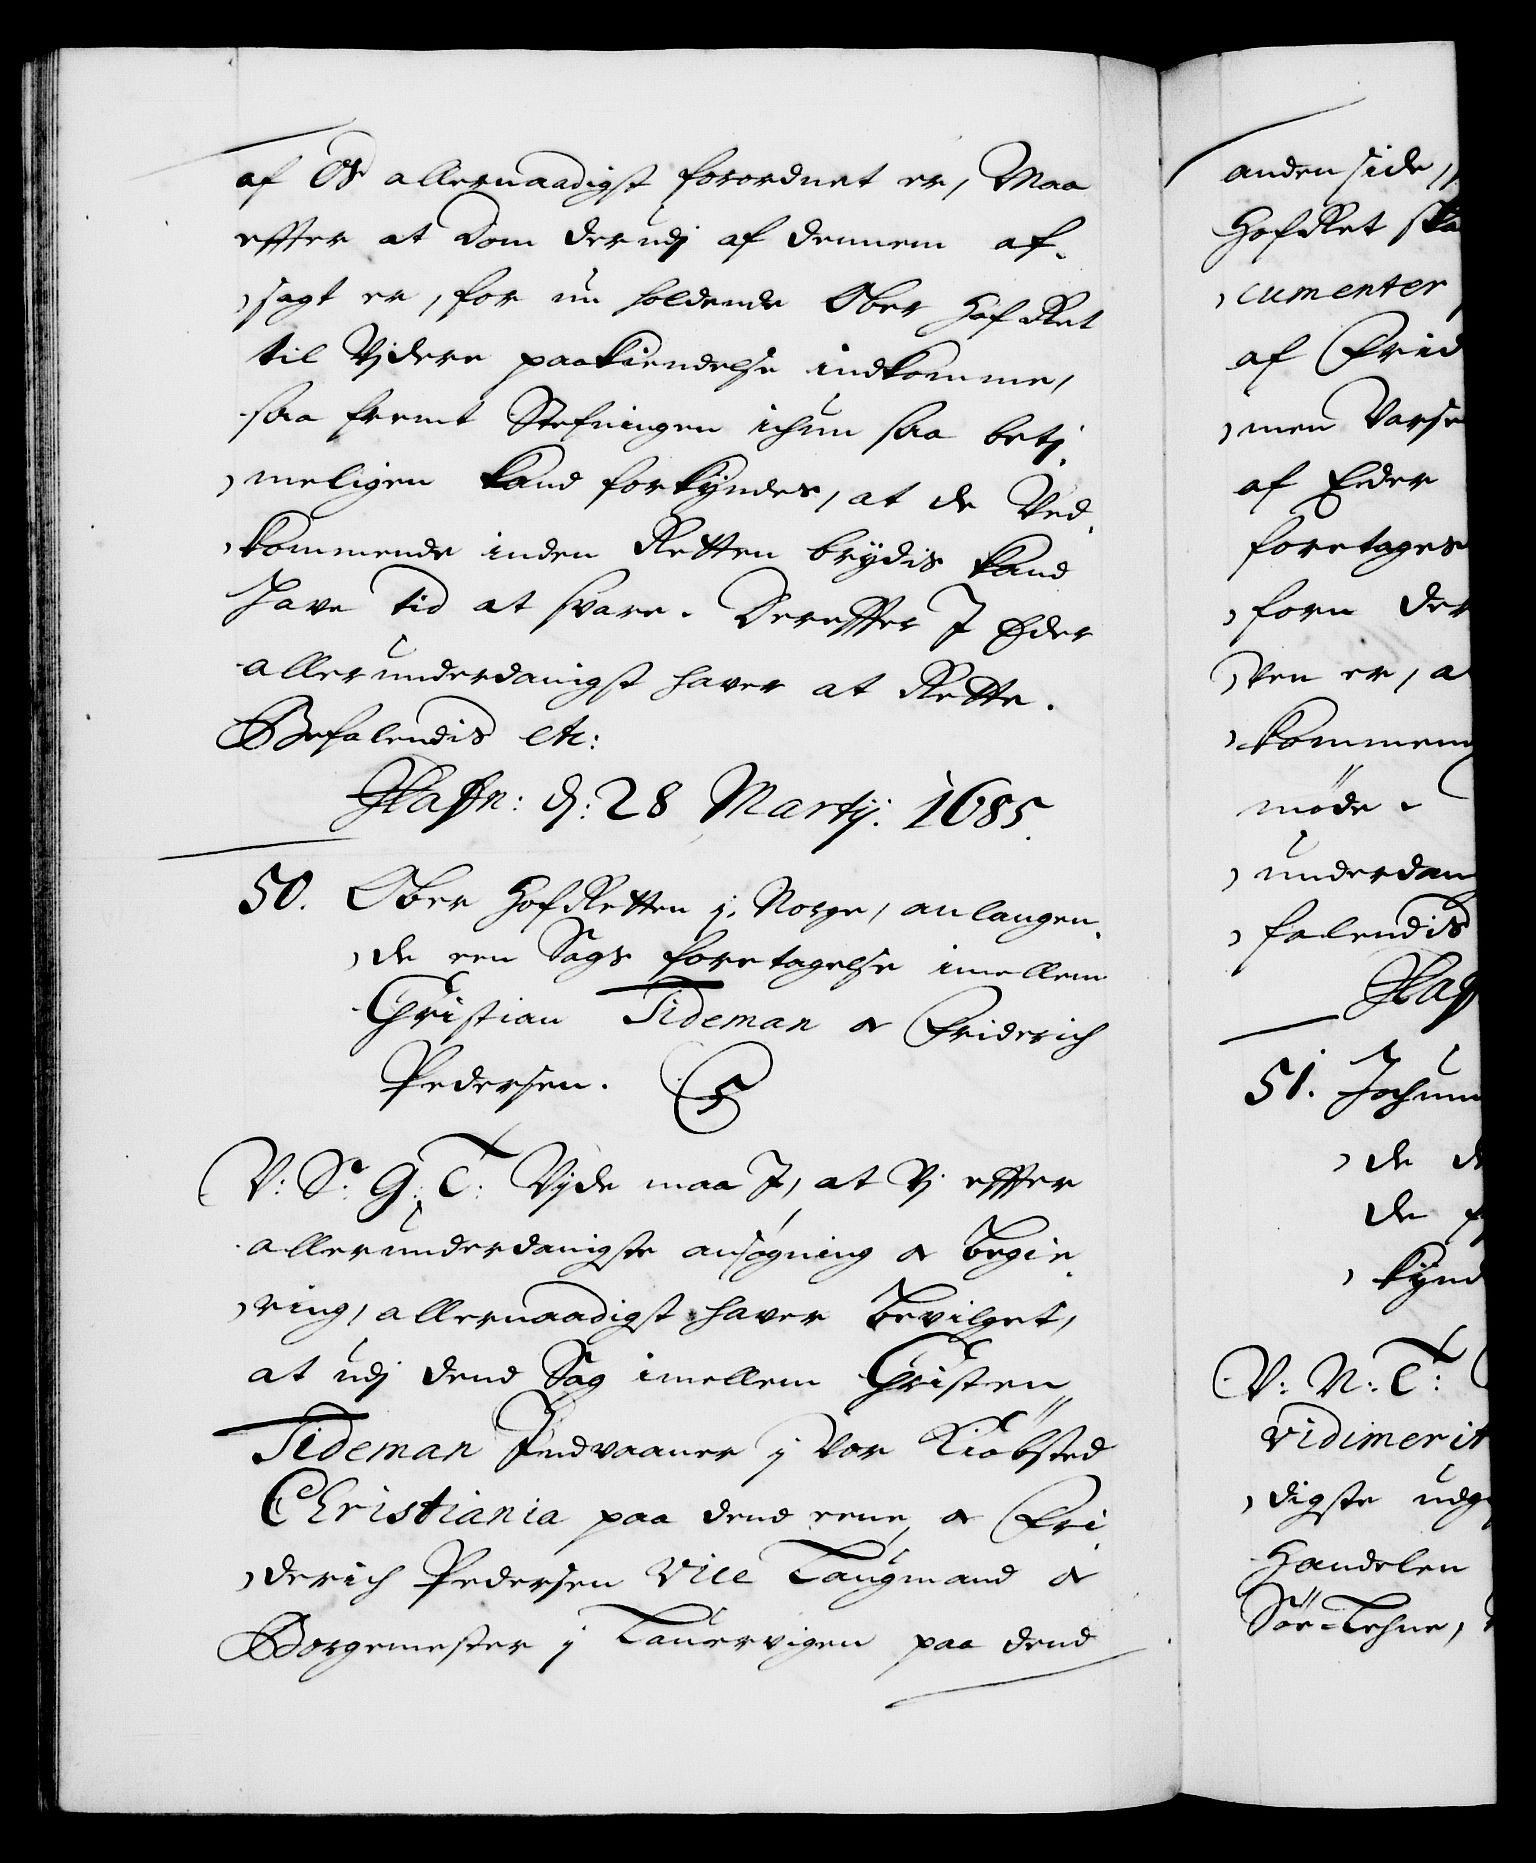 af Os allernaadigst forordnet er, Maa
effter at Dom derudj af dennem af-
sagt er, for nu holdende Ober Hof Ret
til Vjdere paakiendelse indkomme,
saa fremt Stefningen ichun saa betj-
meligen kand forkyndes, at de Ved-
kommende inden Retten brydis kand
have tid at svare. Dereffter I Eder
allerunderdanigst haver at Rette.
Befalendis etc:
Haffn: d: 28 Martij: 1685.
50. Ober HofRetten j Norge, anlangen-
de een Sags foretagelse imellem
Christian Tideman oc Friderich
Pedersen.
V: S: G: T: Vjde maa I, at Vj effter
allerunderdanigste ansøgning oc begie-
ring, allernaadigst haver bevilget,
at udj dend Sag imellem Christen
Tideman Indvaaner j Vor Kiøbsted
Christiania paa dend eene, oc Fri-
derich Pedersen Vice Laugmand oc
Borgemester j Lauervigen paa dend
anden side,
HofRet ska
cumenter
af Frid
men Varse
af Eder
foretages
forn der
Ven er, a
kommen
møde.
underdan
falendis
Haff
51. Jochum
de de
de f
kynd
V: N: T:
Vidimerit
digste udg
Handelen
Söe-Lehne,